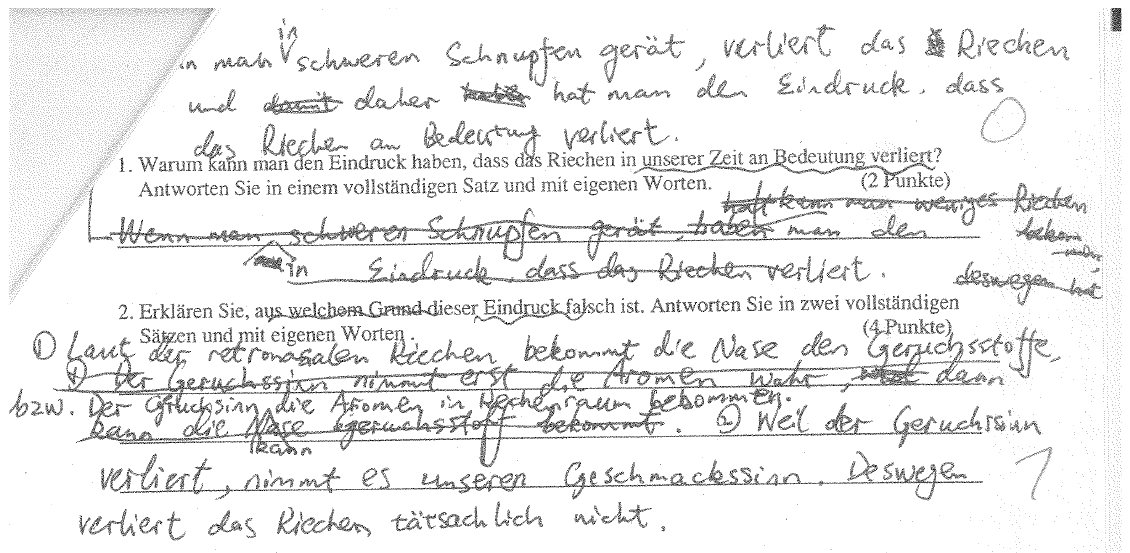 in
n man schweren Schnupfen gerät, verliert das Riechen
und damit daher hat man den Eindruck, dass
das Riechen an Bedeutung verliert.
0
1. Warum kann man den Eindruck haben, dass das Riechen in unserer Zeit an Bedeutung verliert?
Antworten Sie in einem vollständigen Satz und mit eigenen Worten. (2 Punkte)
hat kann man weniges Riechen
Wenn man schweren Schnupfen gerät, haben man den
in Eindruck, dass das Riechen verliert.
deswegen hat
2. Erklären Sie, aus welchem Grund dieser Eindruck falsch ist. Antworten Sie in zwei vollständigen
Sätzen und mit eigenen Worten. (4 Punkte)
① Laut der retronasalen Riechen bekommt die Nase den Geruchsstoffe,
① Der Geruchssinn nimmt erst die Aromen wahr, dann
bzw. Der Gruchsinn die Aromen in Rechenraum bekommen.
kann die Nase geruchsstoff bekommt. ② Weil der Geruchsinn
kann
verliert, nimmt es unseren Geschmackssinn. Deswegen
1
verliert das Riechen tätsachlich nicht.